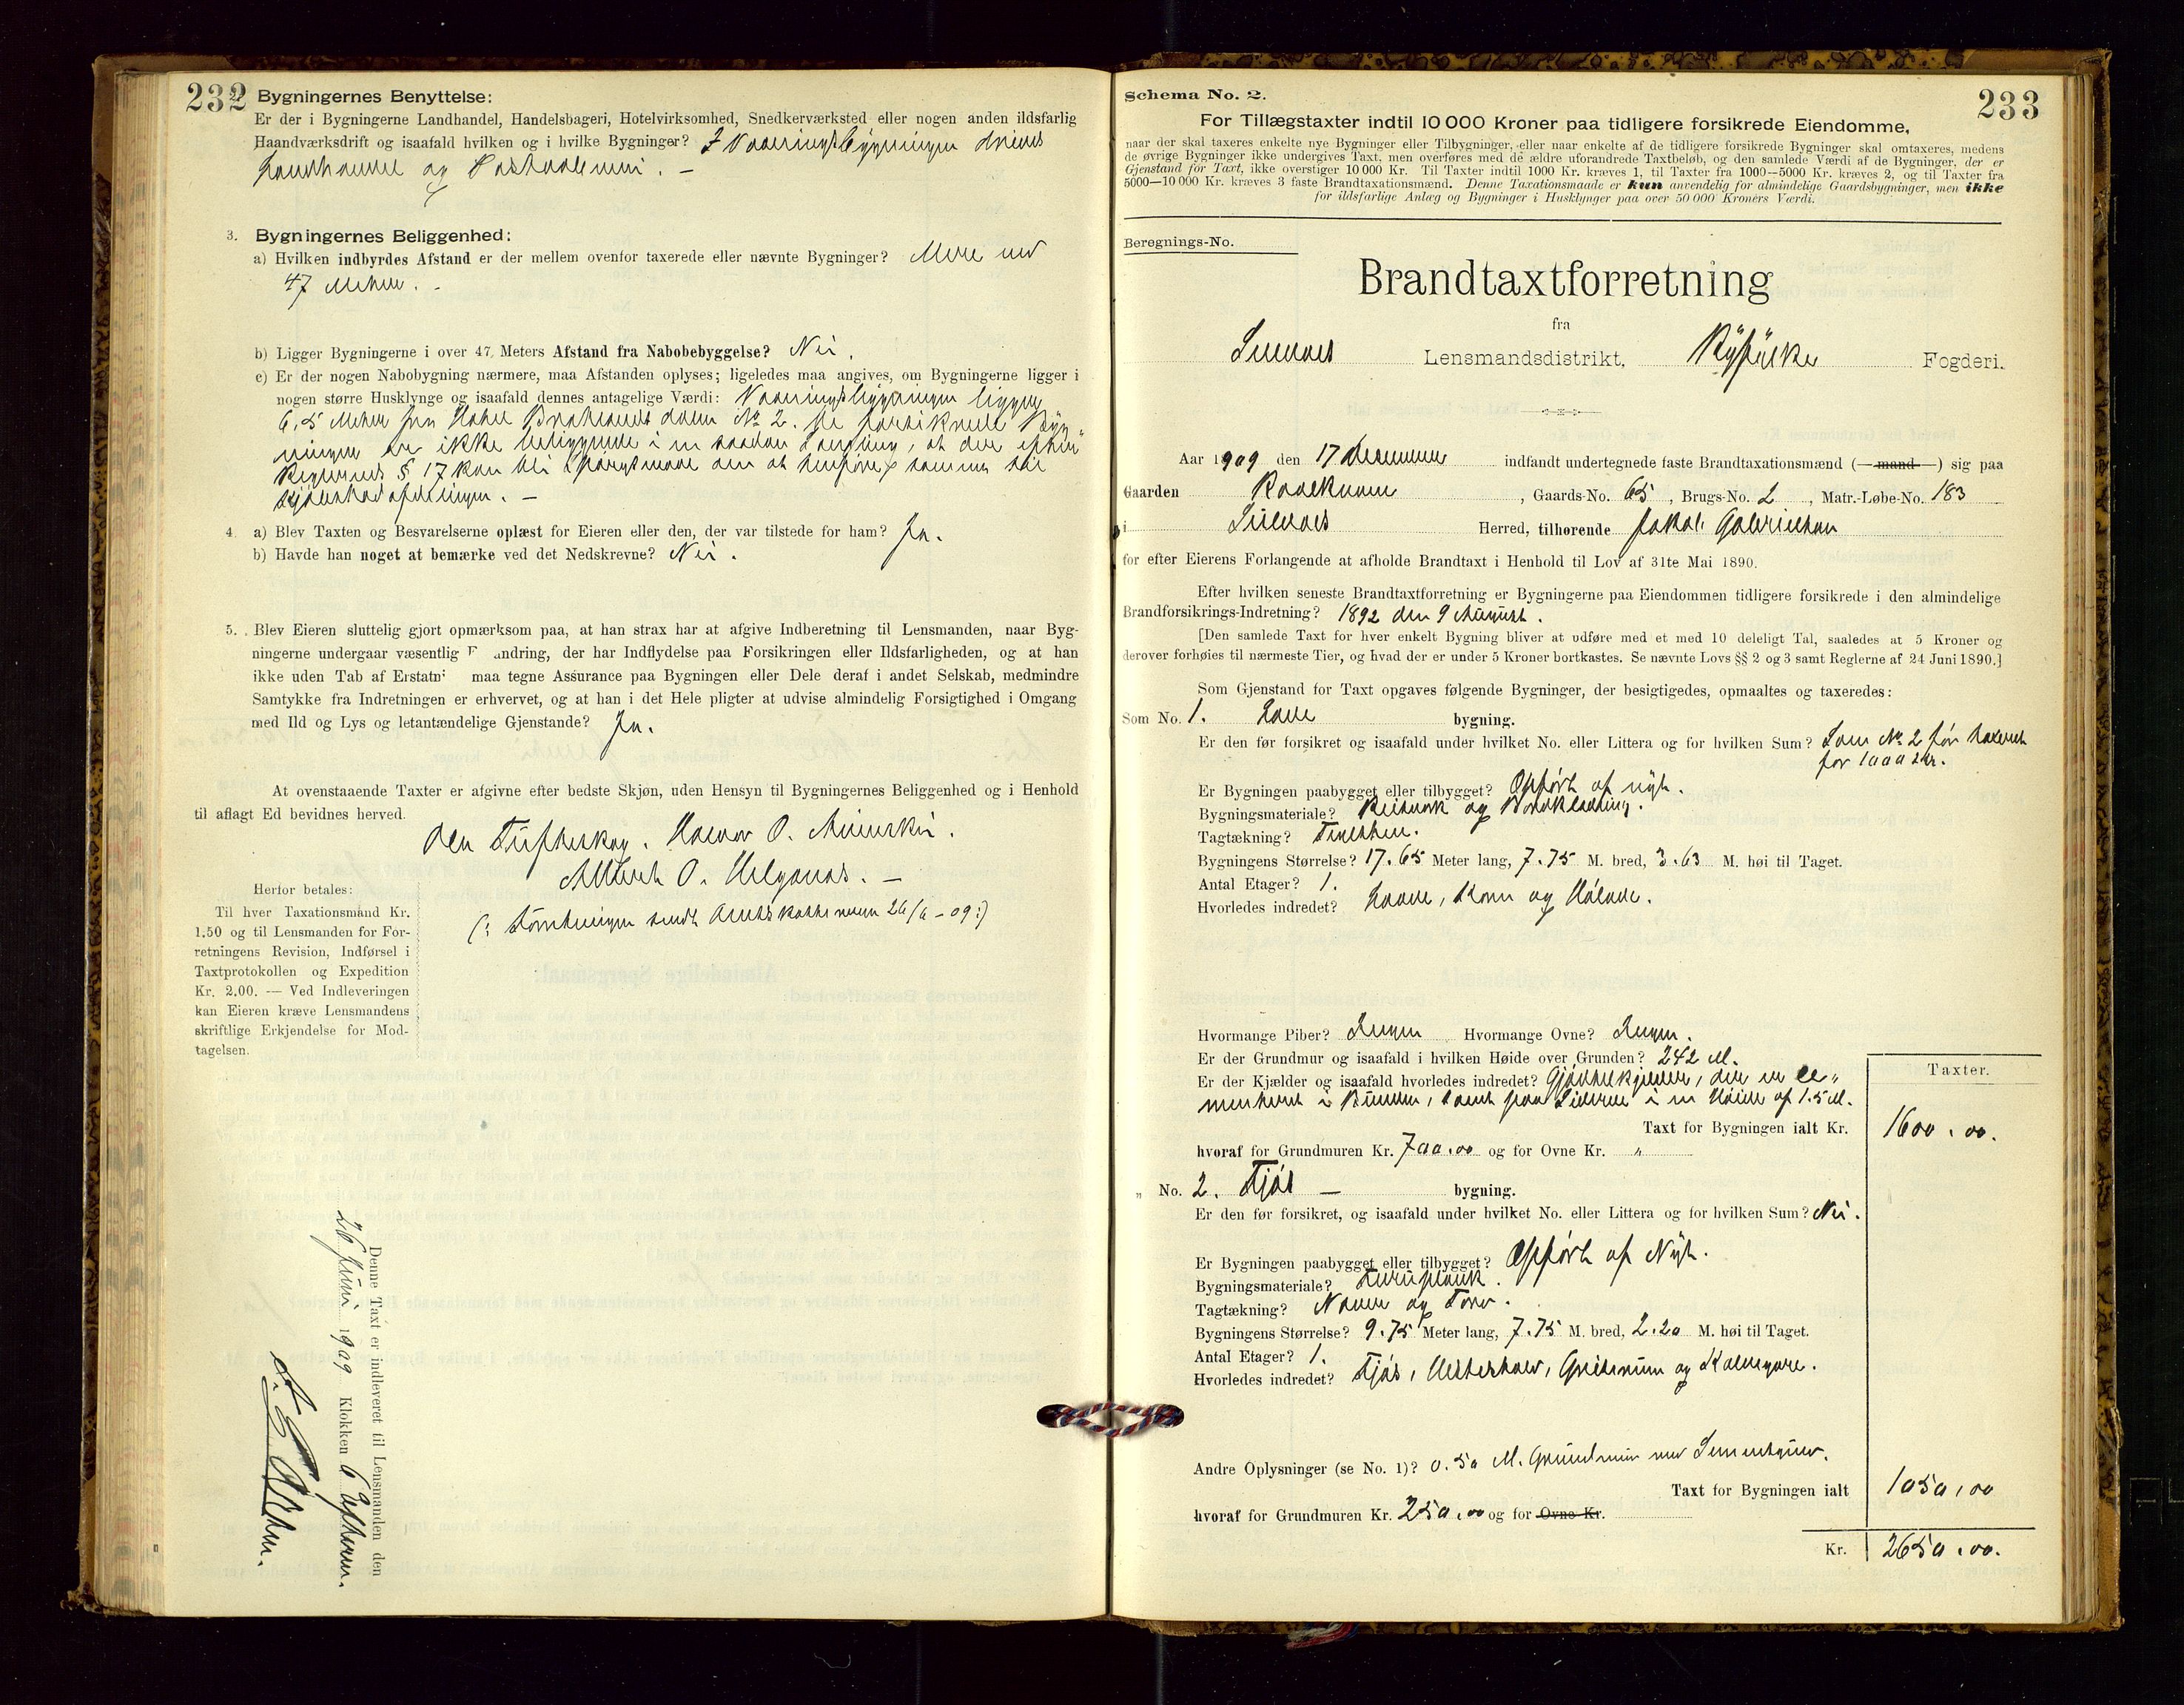 232
Bygningernes Benyttelse:
Er der i Bygningerne Landhandel, Handelsbageri, Hotelvirksomhed, Snedkerværksted eller nogen anden ildsfarlig
Haandværksdrift og isaafald hvilken og i hvilke Bygninger? I Vaaningsbygningen drives
Landhandel og Postaabneri. —
3. Bygningernes Beliggenhed:
a) Hvilken indbyrdes Afstand er der mellem ovenfor taxerede eller nævnte Bygninger? Mere end
47 Meter. -
b) Ligger Bygningerne i over 47 Meters Afstand fra Nabobebyggelse? Nei.
c) Er der nogen Nabobygning nærmere, maa Afstanden oplyses; ligeledes maa angives, om Bygningerne ligger i
nogen større Husklynge og isaafald dennes antagelige Værdi: Vaaningsbygningen ligger
6,5 Meter fra No 2. De forsikrede Byg-
ninger er ikke beliggende i en saadan Samling, at der efter
Reglernes § 17 kan bli Spørgsmaal om at henføre samme til
4. a) Blev Taxten og Besvarelserne oplæst for Eieren eller den, der var tilstede for ham? Ja.
b) Havde han noget at bemærke ved det Nedskrevne? Nei.
5. Blev Eieren sluttelig gjort opmærksom paa, at han strax har at afgive Indberetning til Lensmanden, naar Byg-
ningerne undergaar væsentlig F andring, der har Indflydelse paa Forsikringen eller Ildsfarligheden, og at han
ikke uden Tab af Erstatn maa tegne Assurance paa Bygningen eller Dele deraf i andet Selskab, medmindre
Samtykke fra Indretningen er erhvervet, og at han i det Hele pligter at udvise almindelig Forsigtighed i Omgang
med Ild og Lys og letantændelige Gjenstande? Ja.
At ovenstaaende Taxter er afgivne efter bedste Skjøn, uden Hensyn til Bygningernes Beliggenhed og i Henhold
til aflagt Ed bevidnes herved.
Ola Tufteskog. Halvor O.
O. Helganes. —
(: Forretningen sendt Amtskassereren 26/6 - 09:)
Herfor betales:
Til hver Taxationsmand Kr.
1.50 og til Lensmanden for For-
retningens Revision, Indførsel i
Taxtprotokollen og Expedition
Kr. 2.00. — Ved Indleveringen
kan Eieren kræve Lensmandens
skriftlige Erkjendelse for Mod-
tagelsen.
Denne Taxt er indleveret til Lensmanden den
26 Juni 1909 Klokken 6 Efterm.
233
Schema No. 2.
For Tillægstaxter indtil 10 000 Kroner paa tidligere forsikrede Eiendomme,
naar der skal taxeres enkelte nye Bygninger eller Tilbygninger, eller naar enkelte af de tidligere forsikrede Bygninger skal omtaxeres, medens
de øvrige Bygninger ikke undergives Taxt, men overføres med de ældre uforandrede Taxtbeløb, og den samlede Værdi af de Bygninger, der er
Gjenstand for Taxt, ikke overstiger 10 000 Kr. Til Taxter indtil 1000 Kr. kræves 1, til Taxter fra 1000—5000 Kr. kræves 2, og til Taxter fra
5000—10 000 Kr. kræves 3 faste Brandtaxationsmænd. Denne Taxationsmaade er kun anvendelig for almindelige Gaardsbygninger, men ikke
for ildsfarlige Anlæg og Bygninger i Husklynger paa over 50 000 Kroners Værdi.
Beregnings-No.
Brandtaxtforretning
fra
Skudenes Lensmandsdistrikt, Ryfylke Fogderi.
Aar 1909 den 17 indfandt undertegnede faste Brandtaxationsmænd (—mand—) sig paa
Gaarden , Gaards-No. 65 , Brugs-No. 2 , Matr.-Løbe-No. 183
i Herred, tilhørende Jakob Gabrielsen
for efter Eierens Forlangende at afholde Brandtaxt i Henhold til Lov af 31te Mai 1890.
Efter hvilken seneste Brandtaxtforretning er Bygningerne paa Eiendommen tidligere forsikrede i den almindelige
Brandforsikrings-Indretning? 1892 den 9 August.
[Den samlede Taxt for hver enkelt Bygning bliver at udføre med et med 10 deleligt Tal, saaledes at 5 Kroner og
derover forhøies til nærmeste Tier, og hvad der er under 5 Kroner bortkastes. Se nævnte Lovs §§ 2 og 3 samt Reglerne af 24 Juni 1890.]
Som Gjenstand for Taxt opgaves følgende Bygninger, der besigtigedes, opmaaltes og taxeredes:
Som No. 1. Lade bygning.
Er den før forsikret og isaafald under hvilket No. eller Littera og for hvilken Sum? Som No 2 før taxeret
for 1000 Kr.
Er Bygningen paabygget eller tilbygget? Opført af nyt.
Bygningsmateriale? Reisverk og Bordklædning.
Tagtækning? Teglsten.
Bygningens Størrelse? 17.65 Meter lang, 7.75 M. bred, 3.63 M. høi til Taget.
Antal Etager? 1.
Hvorledes indredet? Laave, Korn og Hølade.
Hvormange Piber? Ingen Hvormange Ovne? Ingen.
Er der Grundmur og isaafald i hvilken Høide over Grunden? 2.42 M.
Er der Kjælder og isaafald hvorledes indredet? Gjødselkjelder, der er ce-
menteret i Bunden, samt paa Siderne i en Høide af 1.5 M.
Taxter.
Taxt for Bygningen ialt Kr. 1600.00.
hvoraf for Grundmuren Kr. 700.00 og for Ovne Kr. „
„ No. 2. Fjøs — bygning.
Er den før forsikret, og isaafald under hvilket No. eller Littera og for hvilken Sum? Nei.
Er Bygningen paabygget eller tilbygget? Opført af Nyt.
Bygningsmateriale? Furuplank.
Tagtækning? Næver og Torv.
Bygningens Størrelse? 9.75 Meter lang, 7.75 M. bred, 2.20 M. høi til Taget.
Antal Etager? 1.
Hvorledes indredet? Fjøs, Hestestald, Griserum og Kalvegare.
Andre Oplysninger (se No. 1)? 0.50 M. Grundmur med Sementgulv.
Taxt for Bygningen ialt 1050,00
hvoraf for Grundmuren Kr. 250.00 og for Ovne Kr.
Kr. 2650.00.